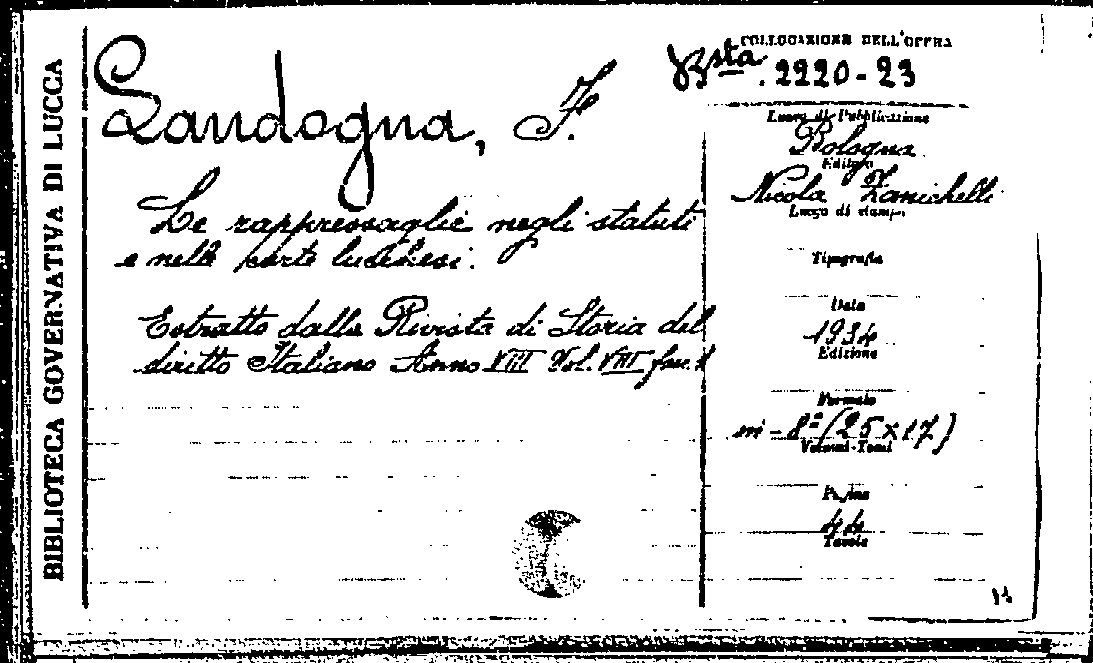 BIBLIOTECA GOVERNATIVA DI LUCCA
Landogna, F.
Le rappresaglie negli statuti
e nelle carte lucchesi.
Estratto dalla Rivista di Storia del
diritto Italiano Anno VIII Vol. VIII fasc. 1
COLLOCAZIONE DELL'OPERA
Bsta. 2220-23
Luogo di Pubblicazione
Bologna
Editore
Nicola Zanichelli
Luogo di stampa
Tipografia
Data
1934
Edizione
Formato
in-8º (25x17)
Volumi-Tomi
Pagine
44
Tavole